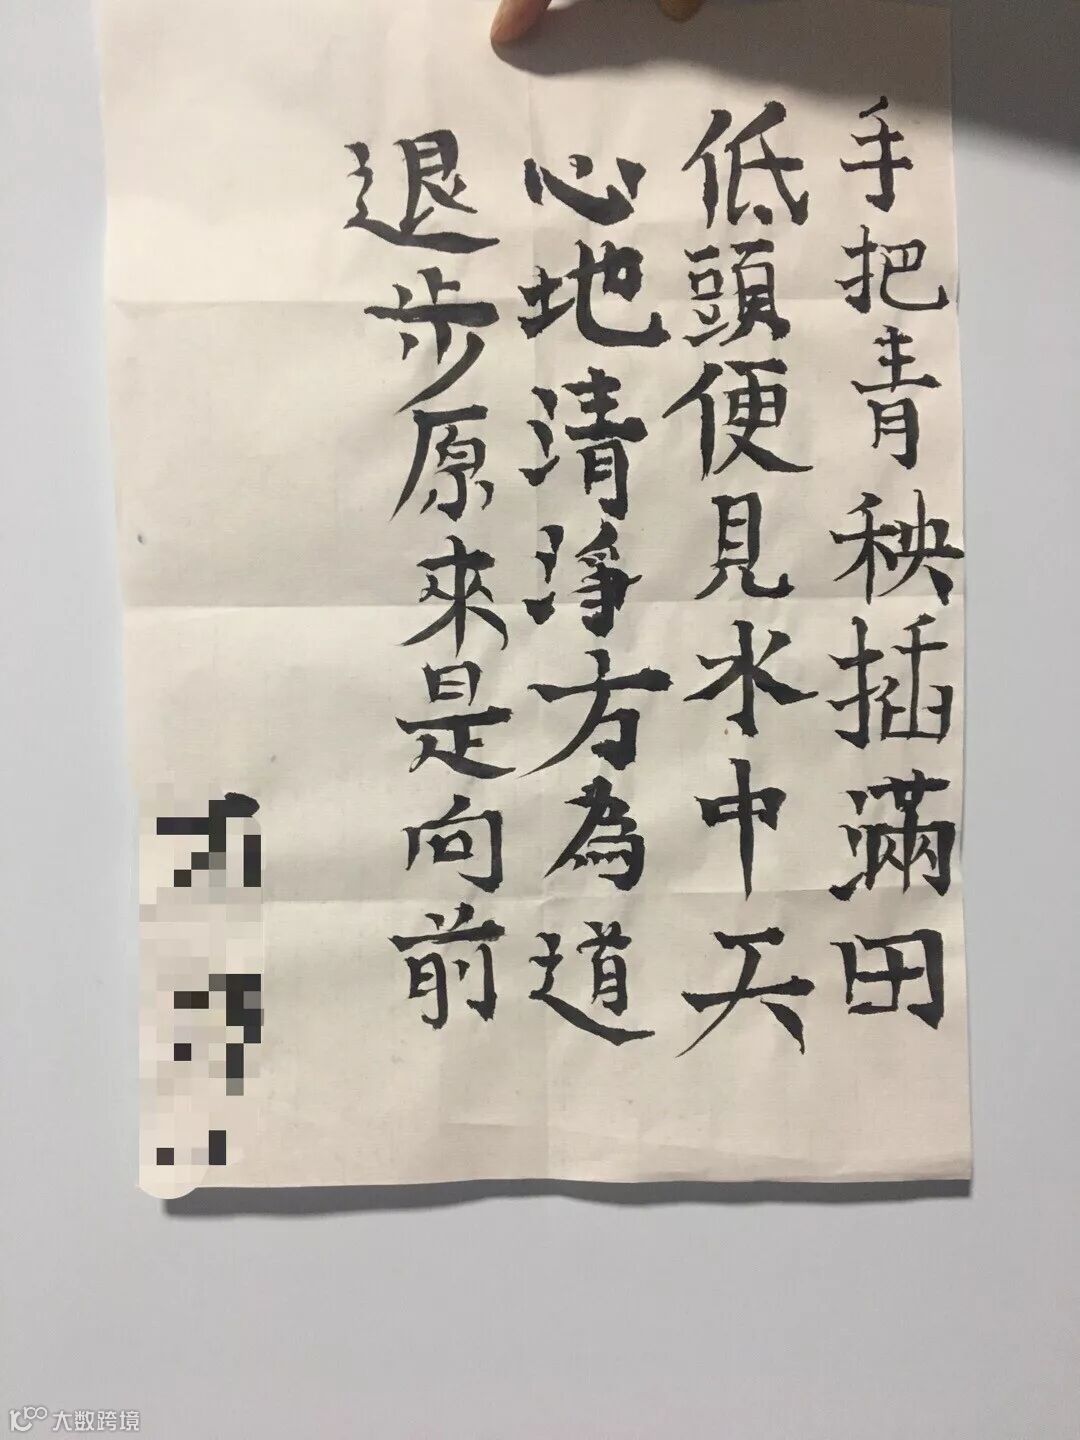 手把青秧插滿田
低頭便見水中天
心地清淨方為道
退步原來是向前
大数跨境